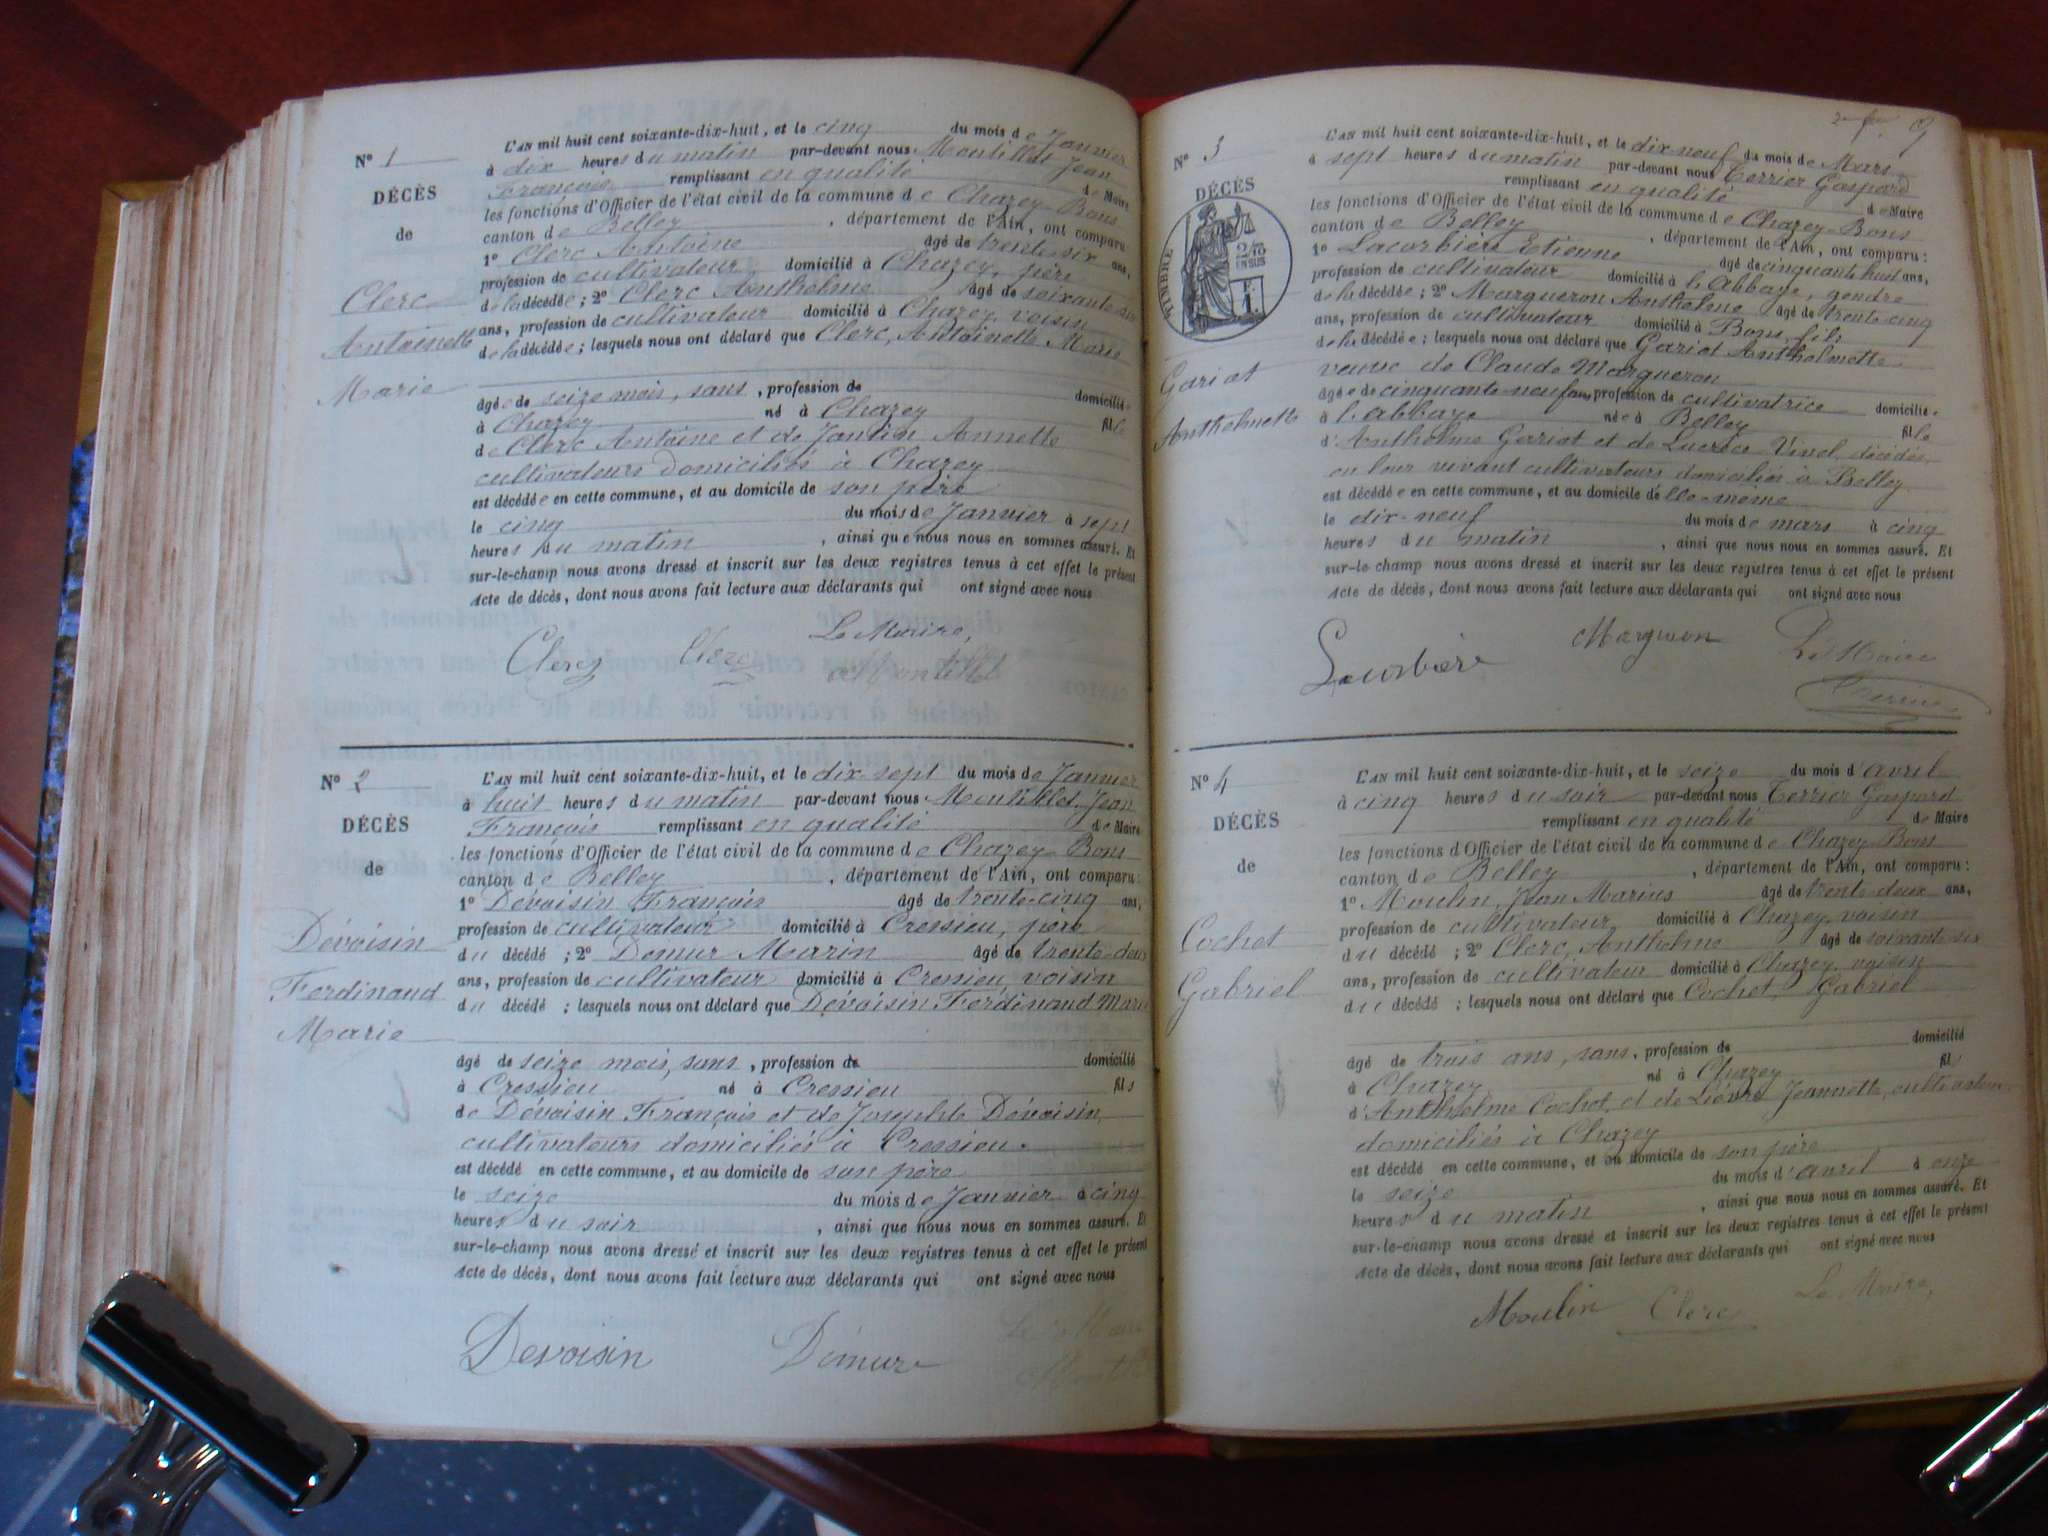 N° 1
DÉCÈS
de
Clerc
Antoinette
Marie
L'AN mil huit cent soixante-dix-huit, et le cinq du mois de Janvier
à dix heures du matin par-devant nous Montillet Jean
François remplissant en qualité de Maire
les fonctions d'Officier de l'état civil de la commune de Chazey-Bons
canton de Belley, département de l'Ain, ont comparu:
1° Clerc Antoine âgé de trente-six ans,
profession de cultivateur, domicilié à Chazey, père
de la décédée; 2° Clerc Anthelme âgé de soixante-six
ans, profession de cultivateur domicilié à Chazey, voisin
de la décédée; lesquels nous ont déclaré que Clerc, Antoinette Marie
âgée de seize mois, sans, profession de domiciliée
à Chazey né à Chazey fille
de Clerc Antoine et de Annette
cultivateurs domiciliés à Chazey
est décédée en cette commune, et au domicile de son père
le cinq du mois de Janvier à sept
heures du matin, ainsi que nous nous en sommes assuré. Et
sur-le-champ nous avons dressé et inscrit sur les deux registres tenus à cet effet le présent
Acte de décès, dont nous avons fait lecture aux déclarants qui ont signé avec nous
Le Maire,
Clerc Clerc Montillet
N° 2
DÉCÈS
de
Dévoisin
Ferdinand
Marie
L'AN mil huit cent soixante-dix-huit, et le dix-sept du mois de Janvier
à huit heures du matin par-devant nous Montillet Jean
François remplissant en qualité de Maire
les fonctions d'Officier de l'état civil de la commune de Chazey-Bons
canton de Belley, département de l'Ain, ont comparu:
1° Dévoisin François âgé de trente-cinq ans,
profession de cultivateur domicilié à Cressieu, père
du décédé; 2° Demur Marin âgé de trente-deux
ans, profession de cultivateur domicilié à Cressieu, voisin
du décédé; lesquels nous ont déclaré que Dévoisin Ferdinand Marie
âgé de seize mois, sans, profession de domicilié
à Cressieu né à Cressieu fils
de Dévoisin François et de Josephte Dévoisin,
cultivateurs domiciliés à Cressieu.
est décédé en cette commune, et au domicile de son père
le seize du mois de Janvier à cinq
heures du soir, ainsi que nous nous en sommes assuré. Et
sur-le-champ nous avons dressé et inscrit sur les deux registres tenus à cet effet le présent
Acte de décès, dont nous avons fait lecture aux déclarants qui ont signé avec nous
Le Maire
Devoisin Démure
N° 3
DÉCÈS
TIMBRE
2/10 EN SUS
Gariot
Anthelmette
L'AN mil huit cent soixante-dix-huit, et le dix-neuf du mois de Mars
à sept heures du matin par-devant nous Terrier Gaspard
remplissant en qualité de Maire
les fonctions d'Officier de l'état civil de la commune de Chazey-Bons
canton de Belley, département de l'Ain, ont comparu:
1° Lacorbière Etienne âgé de cinquante huit ans,
profession de cultivateur domicilié à l'Abbaye, gendre
de la décédée; 2° Margueron Anthelme âgé de trente-cinq
ans, profession de cultivateur domicilié à Bons, fils
de la décédée; lesquels nous ont déclaré que Gariot Anthelmette
veuve de Claude Margueron
âgée de cinquante-neuf ans, profession de cultivatrice domiciliée
à l'Abbaye née à Belley fille
d'Anthelme Gariot et de Lucrèce décédés,
en leur vivant cultivateurs domiciliés à Belley
est décédée en cette commune, et au domicile d'elle-même
le dix-neuf du mois de mars à cinq
heures du matin, ainsi que nous nous en sommes assuré. Et
sur-le-champ nous avons dressé et inscrit sur les deux registres tenus à cet effet le présent
Acte de décès, dont nous avons fait lecture aux déclarants qui ont signé avec nous
Le Maire
N° 4
DÉCÈS
de
Cochet
Gabriel
L'AN mil huit cent soixante-dix-huit, et le seize du mois d'avril
à cinq heures du soir par-devant nous Terrier Gaspard
remplissant en qualité de Maire
les fonctions d'Officier de l'état civil de la commune de Chazey-Bons
canton de Belley, département de l'Ain, ont comparu:
1° Moulin, Jean Marius âgé de trente-deux ans,
profession de cultivateur domicilié à Chazey, voisin
du décédé; 2° Clerc, Anthelme âgé de soixante-six
ans, profession de cultivateur domicilié à Chazey, voisin
du décédé; lesquels nous ont déclaré que Cochet, Gabriel
âgé de trois ans, sans, profession de domicilié
à Chazey né à Chazey fils
d'Anthelme Cochet, et de Lièvre Jeannette, cultivateurs
domiciliés à Chazey
est décédé en cette commune, et au domicile de son père
le seize du mois d'avril à onze
heures du matin, ainsi que nous nous en sommes assuré. Et
sur-le-champ nous avons dressé et inscrit sur les deux registres tenus à cet effet le présent
Acte de décès, dont nous avons fait lecture aux déclarants qui ont signé avec nous
Moulin Clerc Le Maire,